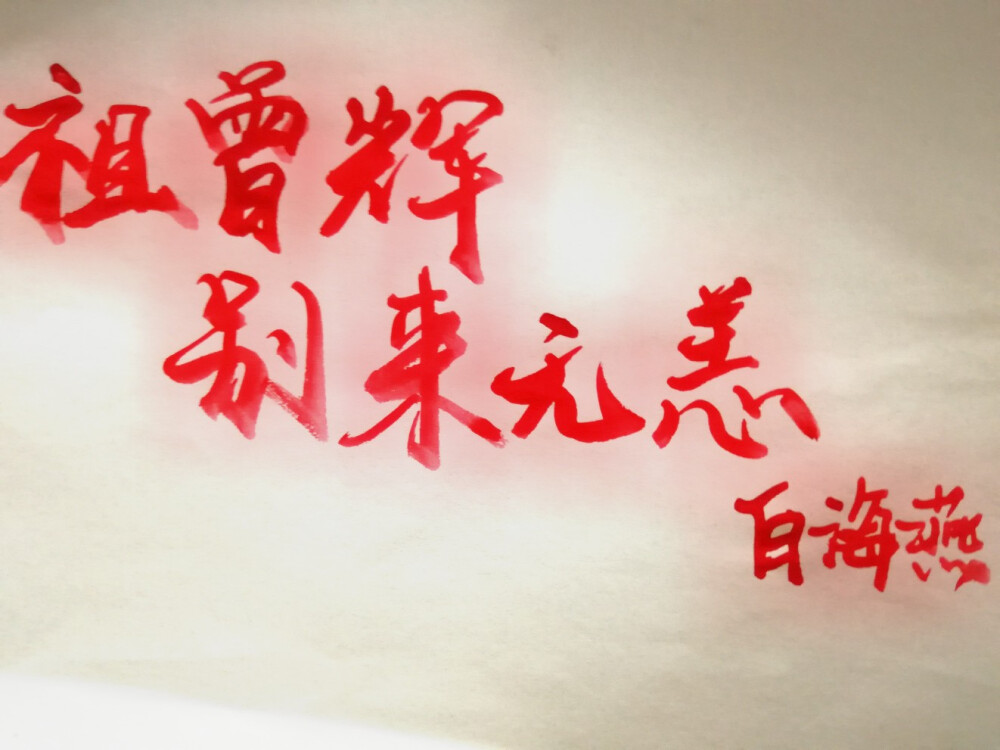 祖曾辉
别来无恙
白海燕